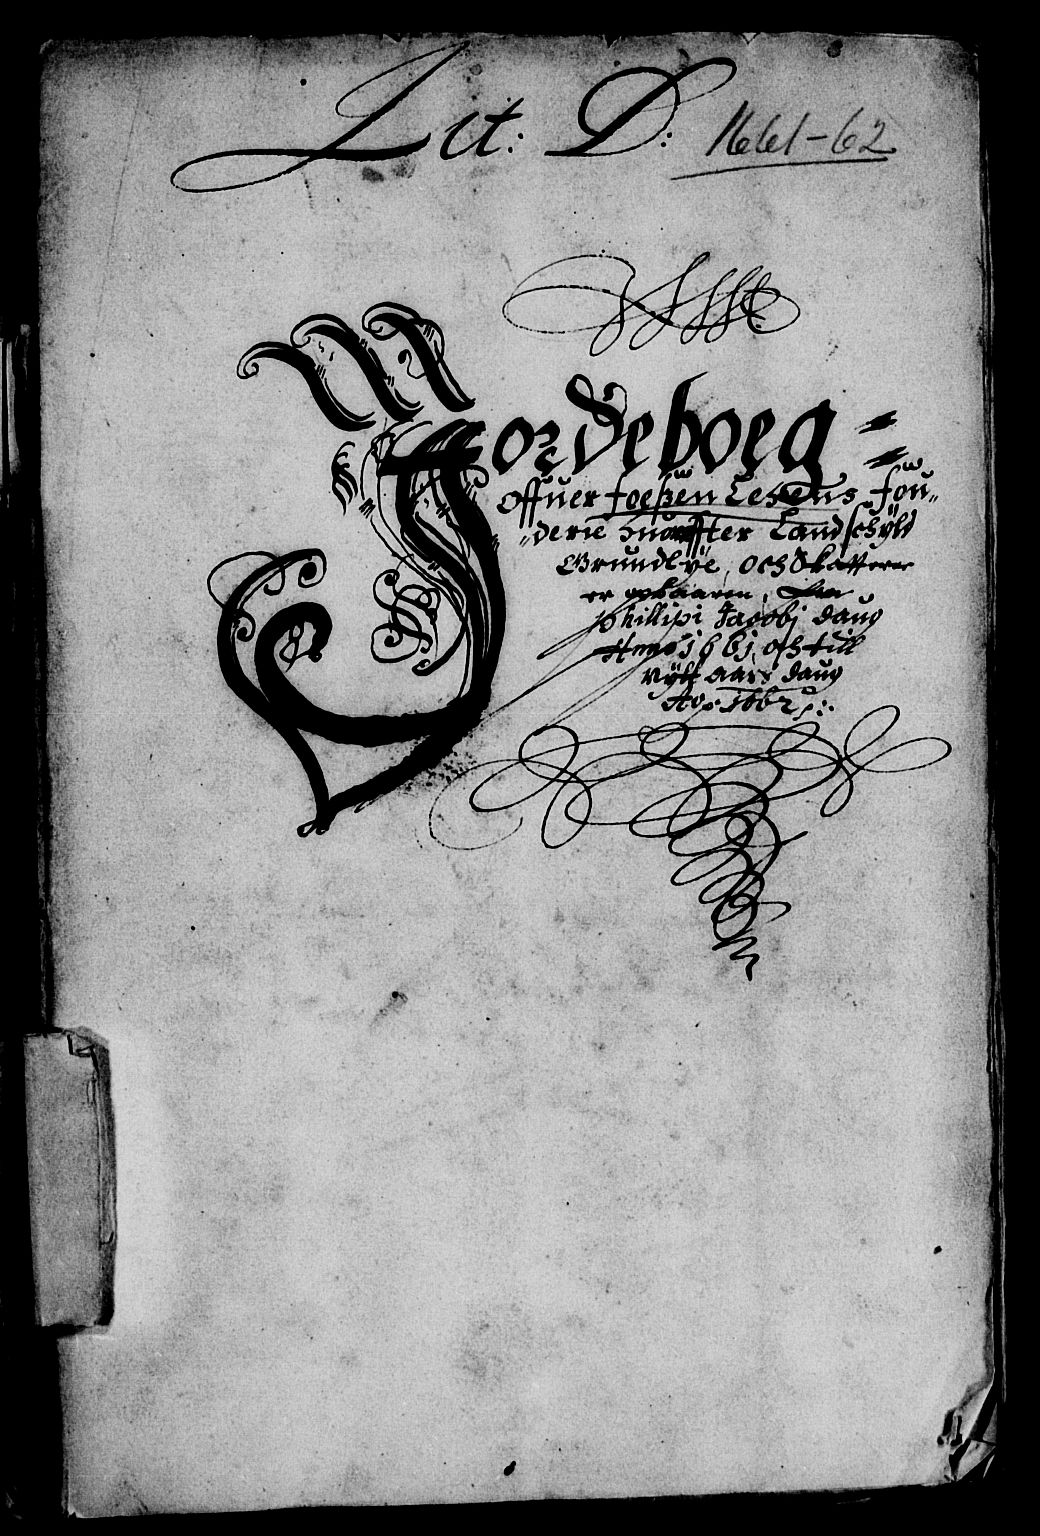 Lit: D: 1661-62
Jordeboeg
Offuer Foeßen Lehens Fou-
-derie huorefter Landschyld
Grundlye, och Skatterne
er opbaaren, Fra
Phillipi Jacobj daug
Anno 1661 och till
Aars daug
Ao: 1662